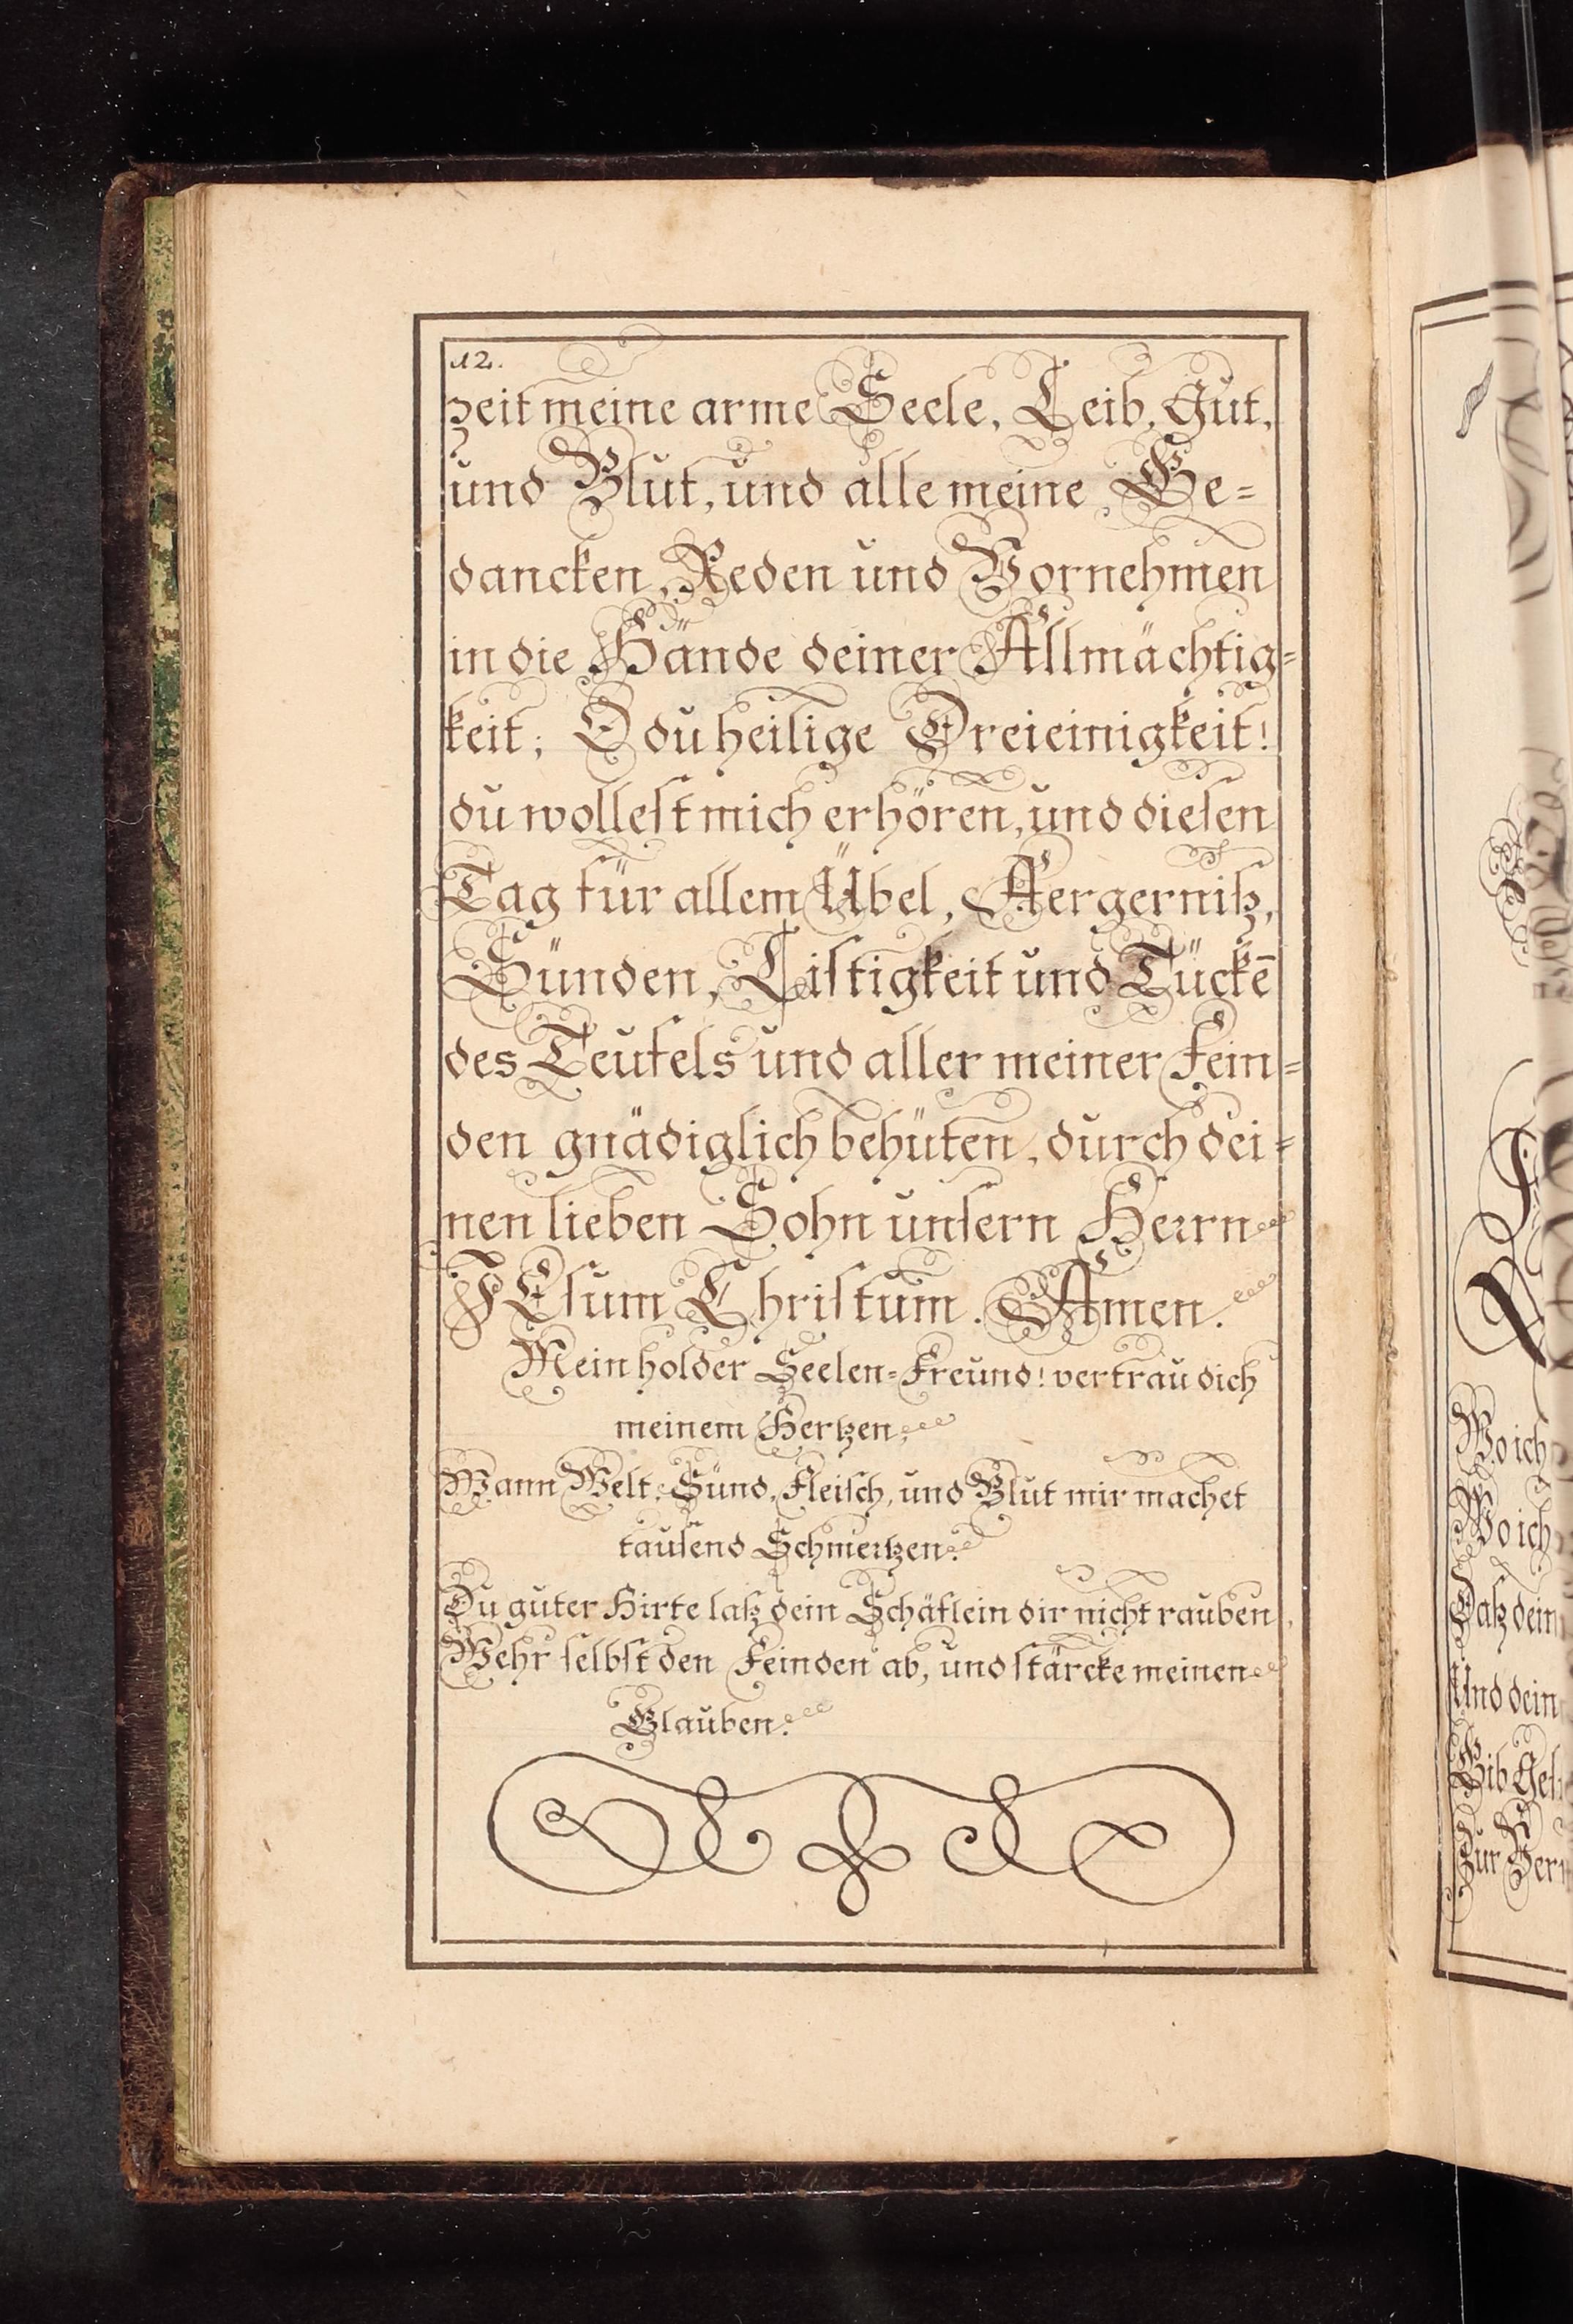 12.
zeit meine arme Seele, Leib, Gut,
und Blut, und alle meine Ge=
dancken, Reden und Vornehmen
in die Hände deiner Allmächtig=
keit; O du heilige Dreieinigkeit!
du wollest mich erhören, und diesen
Tag für allem Übel, Aergerniß,
Sünden, Listigkeit und Tückē
des Teufels und aller meiner Fein=
den gnädiglich behüten, durch dei=
nen lieben Sohn unsern Herrn
JEsum Christum. Amen.
Mein holder Seelen=Freund! vertrau dich
meinem Hertzen,
Wann Welt, Sünd, Fleisch, und Blut mir machet
tausend Schmertzen.
Du guter Hirte laß dein Schäflein dir nicht rauben,
Wehr selbst den Feinden ab, und stärcke meinen
Glauben.
Wo ich
Wo ich
Daß dein
Und dein
Gib
Zur